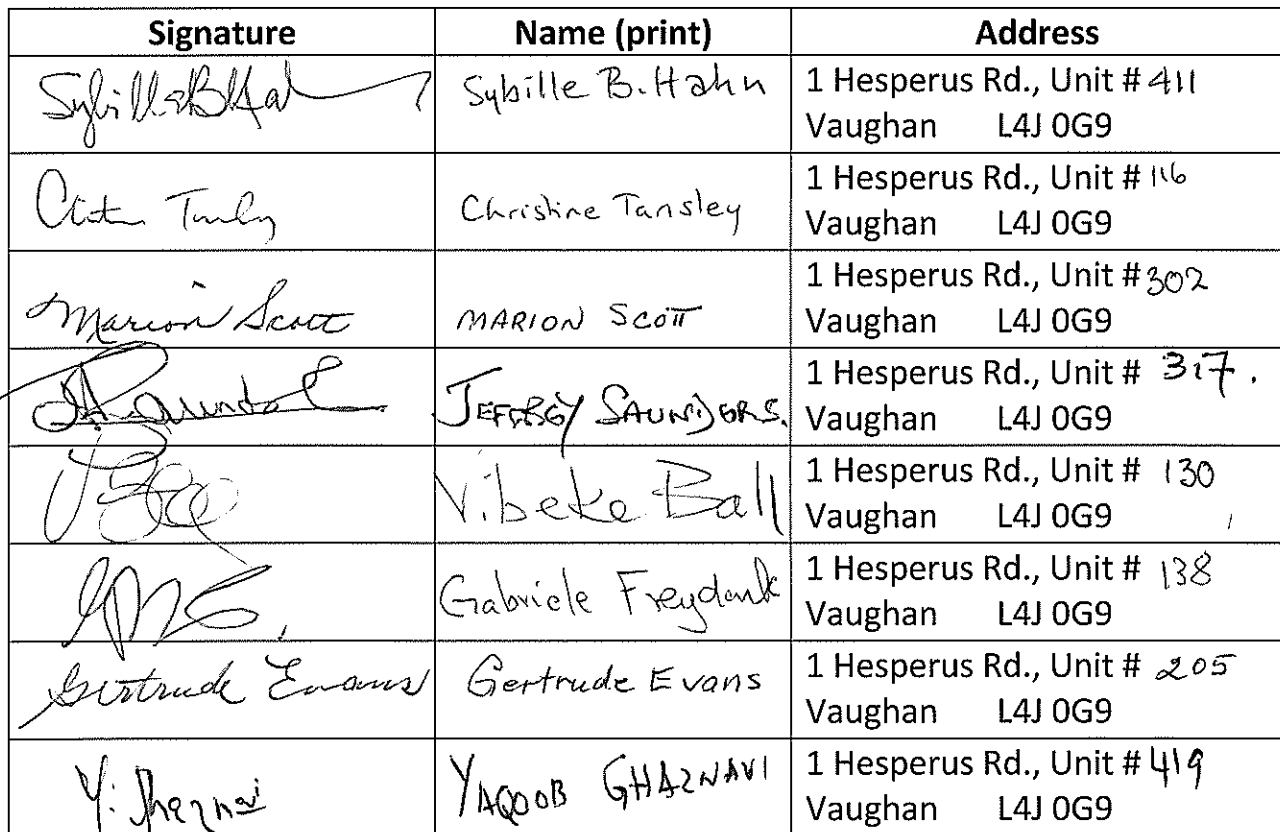 Signature Name (print) Address
Sybille B. Hahn 1 Hesperus Rd., Unit # 411
Vaughan L4J 0G9
Christine Tansley 1 Hesperus Rd., Unit # 116
Vaughan L4J 0G9
Marion Scott MARION SCOTT 1 Hesperus Rd., Unit # 302
Vaughan L4J 0G9
JEFFREY SAUNDERS. 1 Hesperus Rd., Unit # 317.
Vaughan L4J 0G9
Vibeke Ball 1 Hesperus Rd., Unit # 130
Vaughan L4J 0G9
Gabriele Freydank 1 Hesperus Rd., Unit # 138
Vaughan L4J 0G9
Gertrude Evans Gertrude Evans 1 Hesperus Rd., Unit # 205
Vaughan L4J 0G9
YAQOOB GHAZNAVI 1 Hesperus Rd., Unit # 419
Vaughan L4J 0G9